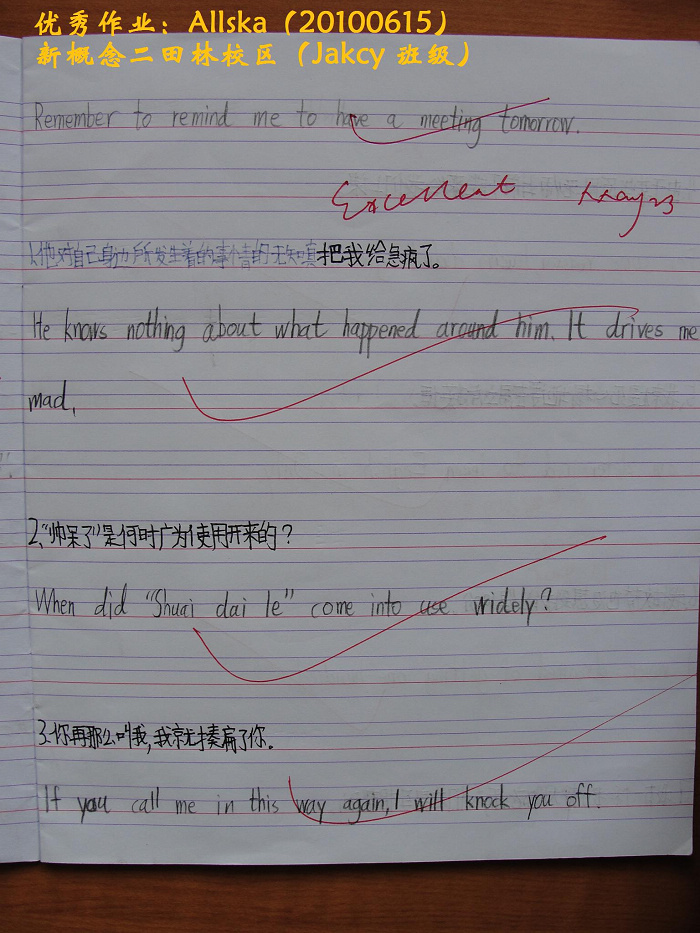 优秀作业：Allska（20100615）
新概念二田林校区（Jakcy 班级）
Remember to remind me to have a meeting tomorrow.
Excellent May 23
1.他对自己身边所发生着的事情的无知真把我给急疯了。
He knows nothing about what happened around him. It drives me
mad.
2.“帅呆了”是何时广为使用开来的？
When did "Shuai dai le" come into use widely?
3.你再那么叫我，我就揍扁了你。
If you call me in this way again, I will knock you off.